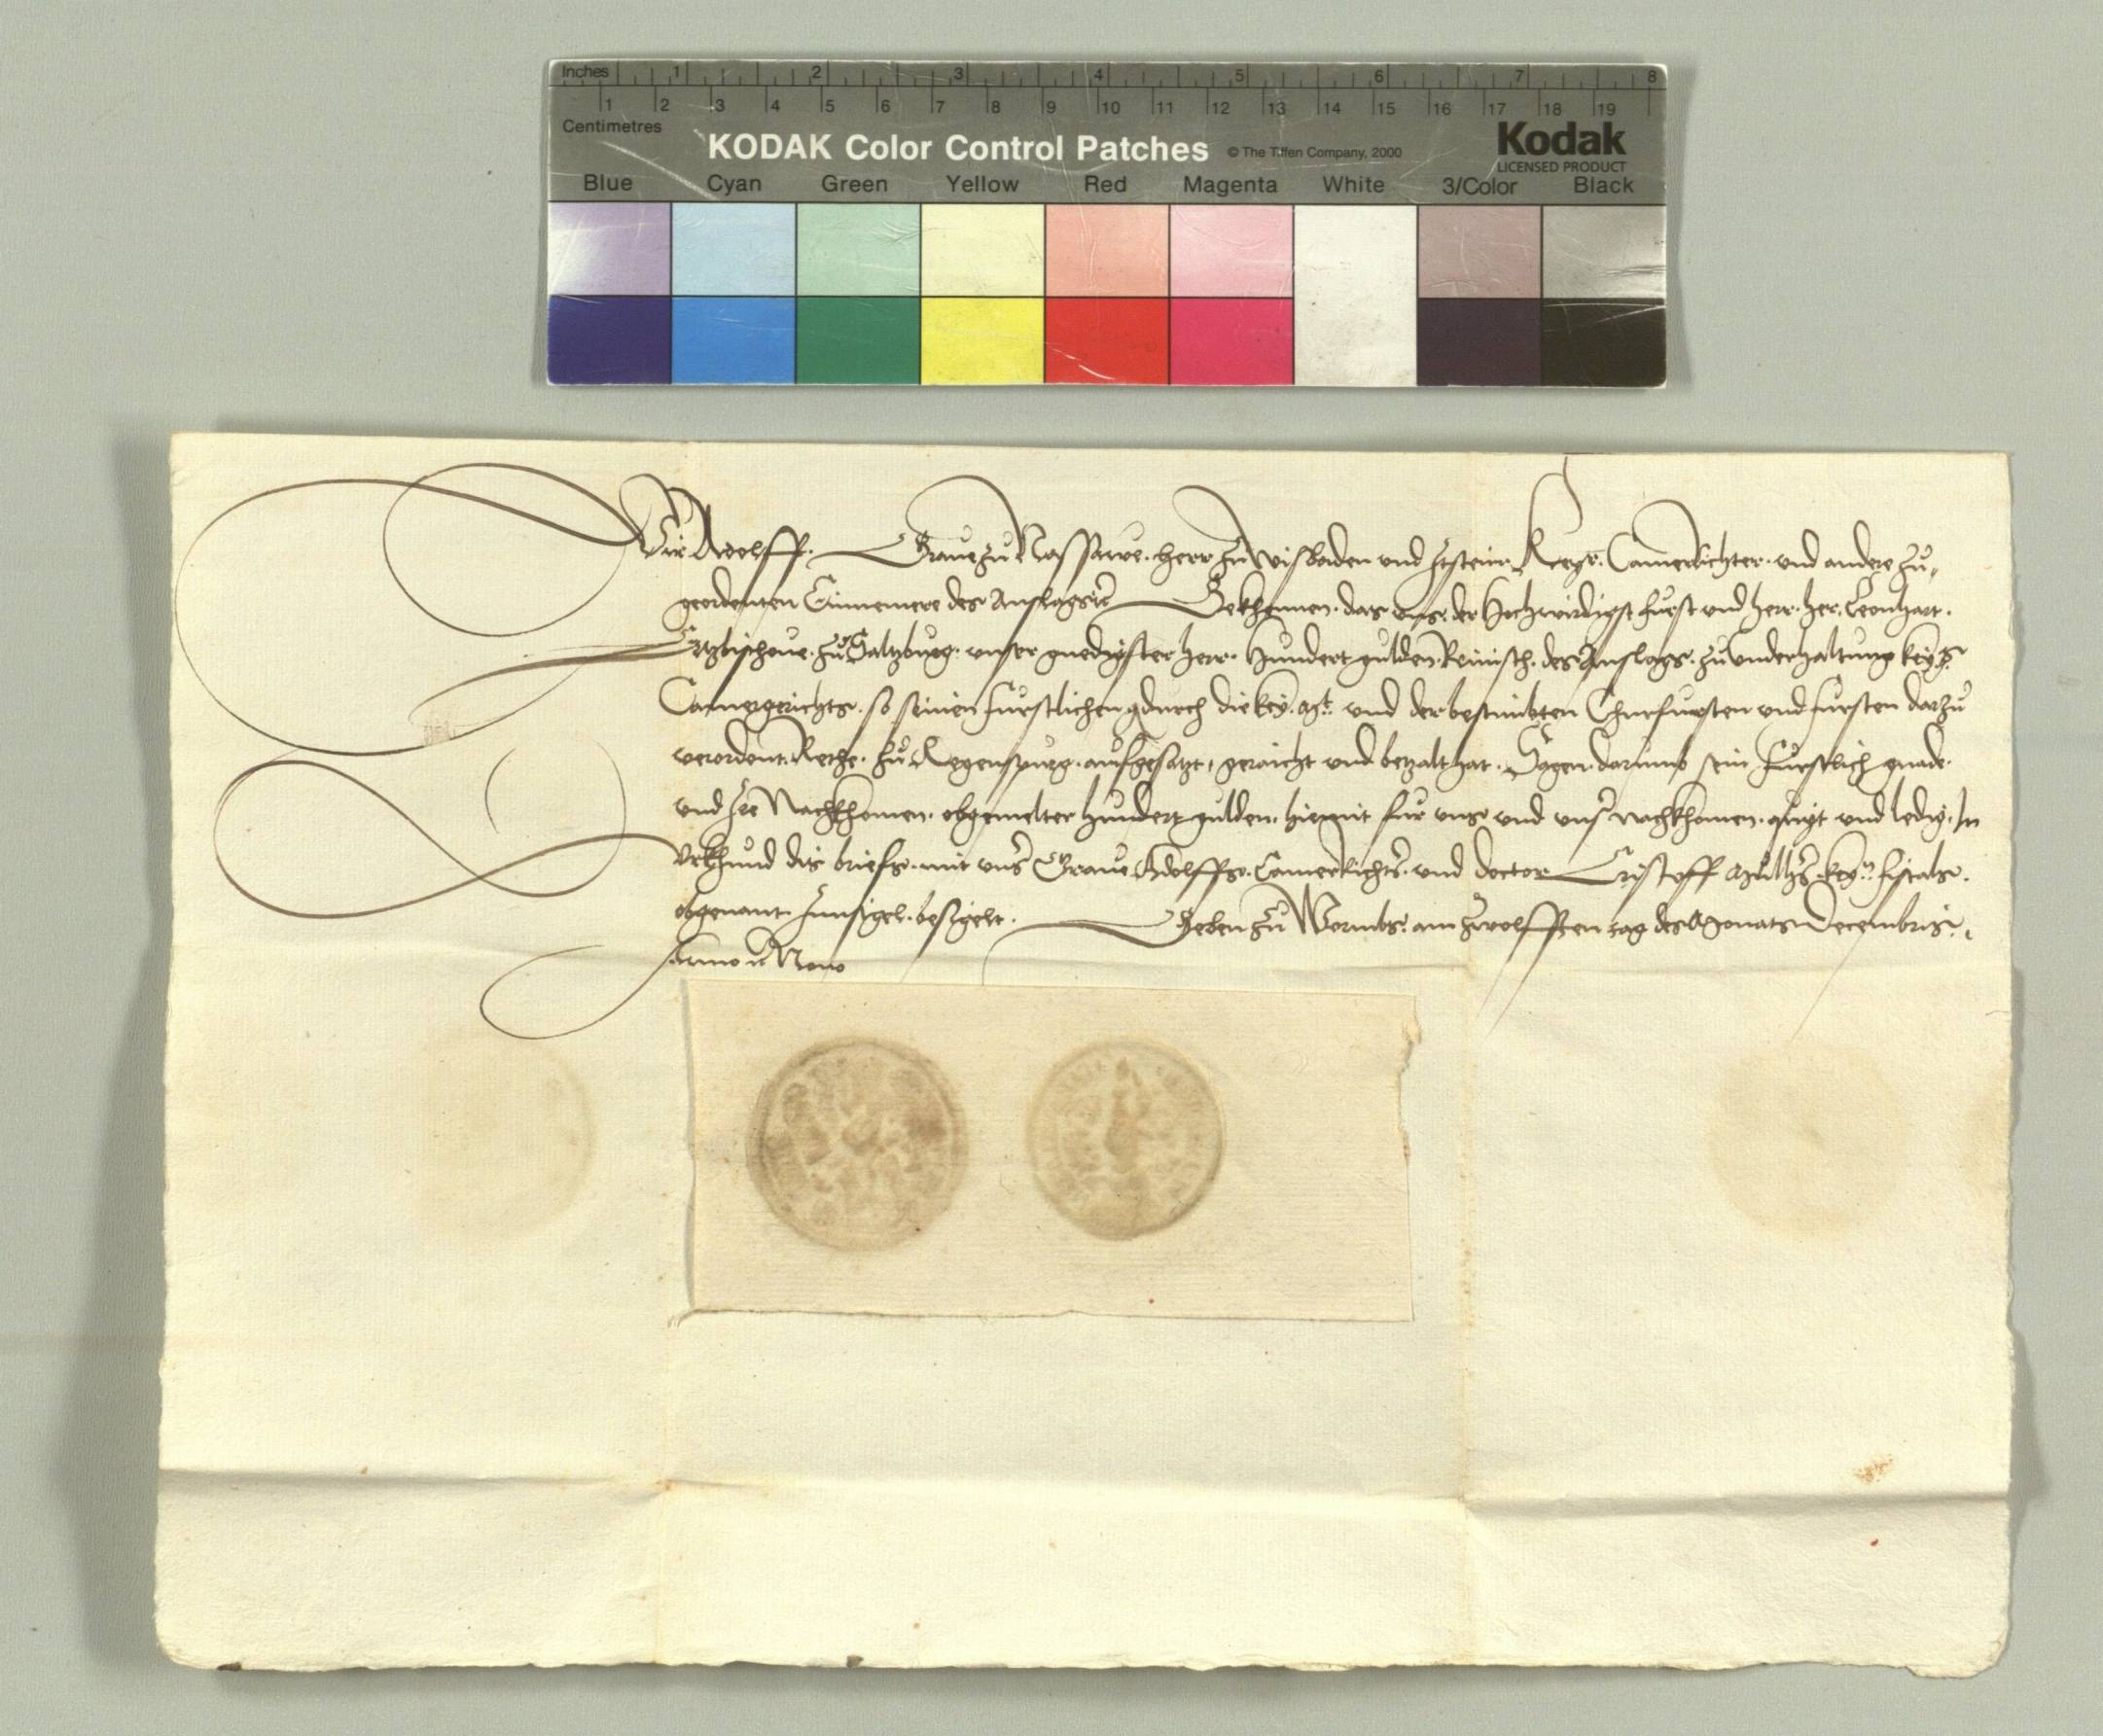 Inches 1 2 3 4 5 6 7 8
1 2 3 4 5 6 7 8 9 10 11 12 13 14 15 16 17 18 19
Centimetres
KODAK Color Control Patches © The Tiffen Company, 2000 Kodak
LICENSED PRODUCT
Blue Cyan Green Yellow Red Magenta White 3/Color Black
Wir Adolff. Graue zu Nassawe. herr zu Wisbaden und Itstein. Camerrichter. und andere zu„
geordenten Einnemere des Anslags Bekhennen. das uns. der Hochwirdigst furst und herr. her. Leonhart.
Ertzbischoue. zu Saltzburg. unser gnedigster herr. Hundert gulden Reinisch. des Anslags. zu underhaltung
Camergerichts. so seinen furstlichen g durch die key. mt. und der bestimbten Churfursten und fursten darzu
verordent. Rethe. zu Regenspurg. aufgesatzt, geraicht und betzalt hat. Sagen. darumb sein furstlich gnade.
und Ire Nachkhomen. obgemelter hundert gulden. hiemit fur uns und unser nachkhomen. quyt und ledig. In
Urkhund dis briefs. mit uns Graue Adolffs. Camerrichters. und doctor Cristoff fiscals.
obgenant. Innsigel. besigelt. Geben zu Wormbs. am zwolfften tag des Monats Decembris.
Anno Nono